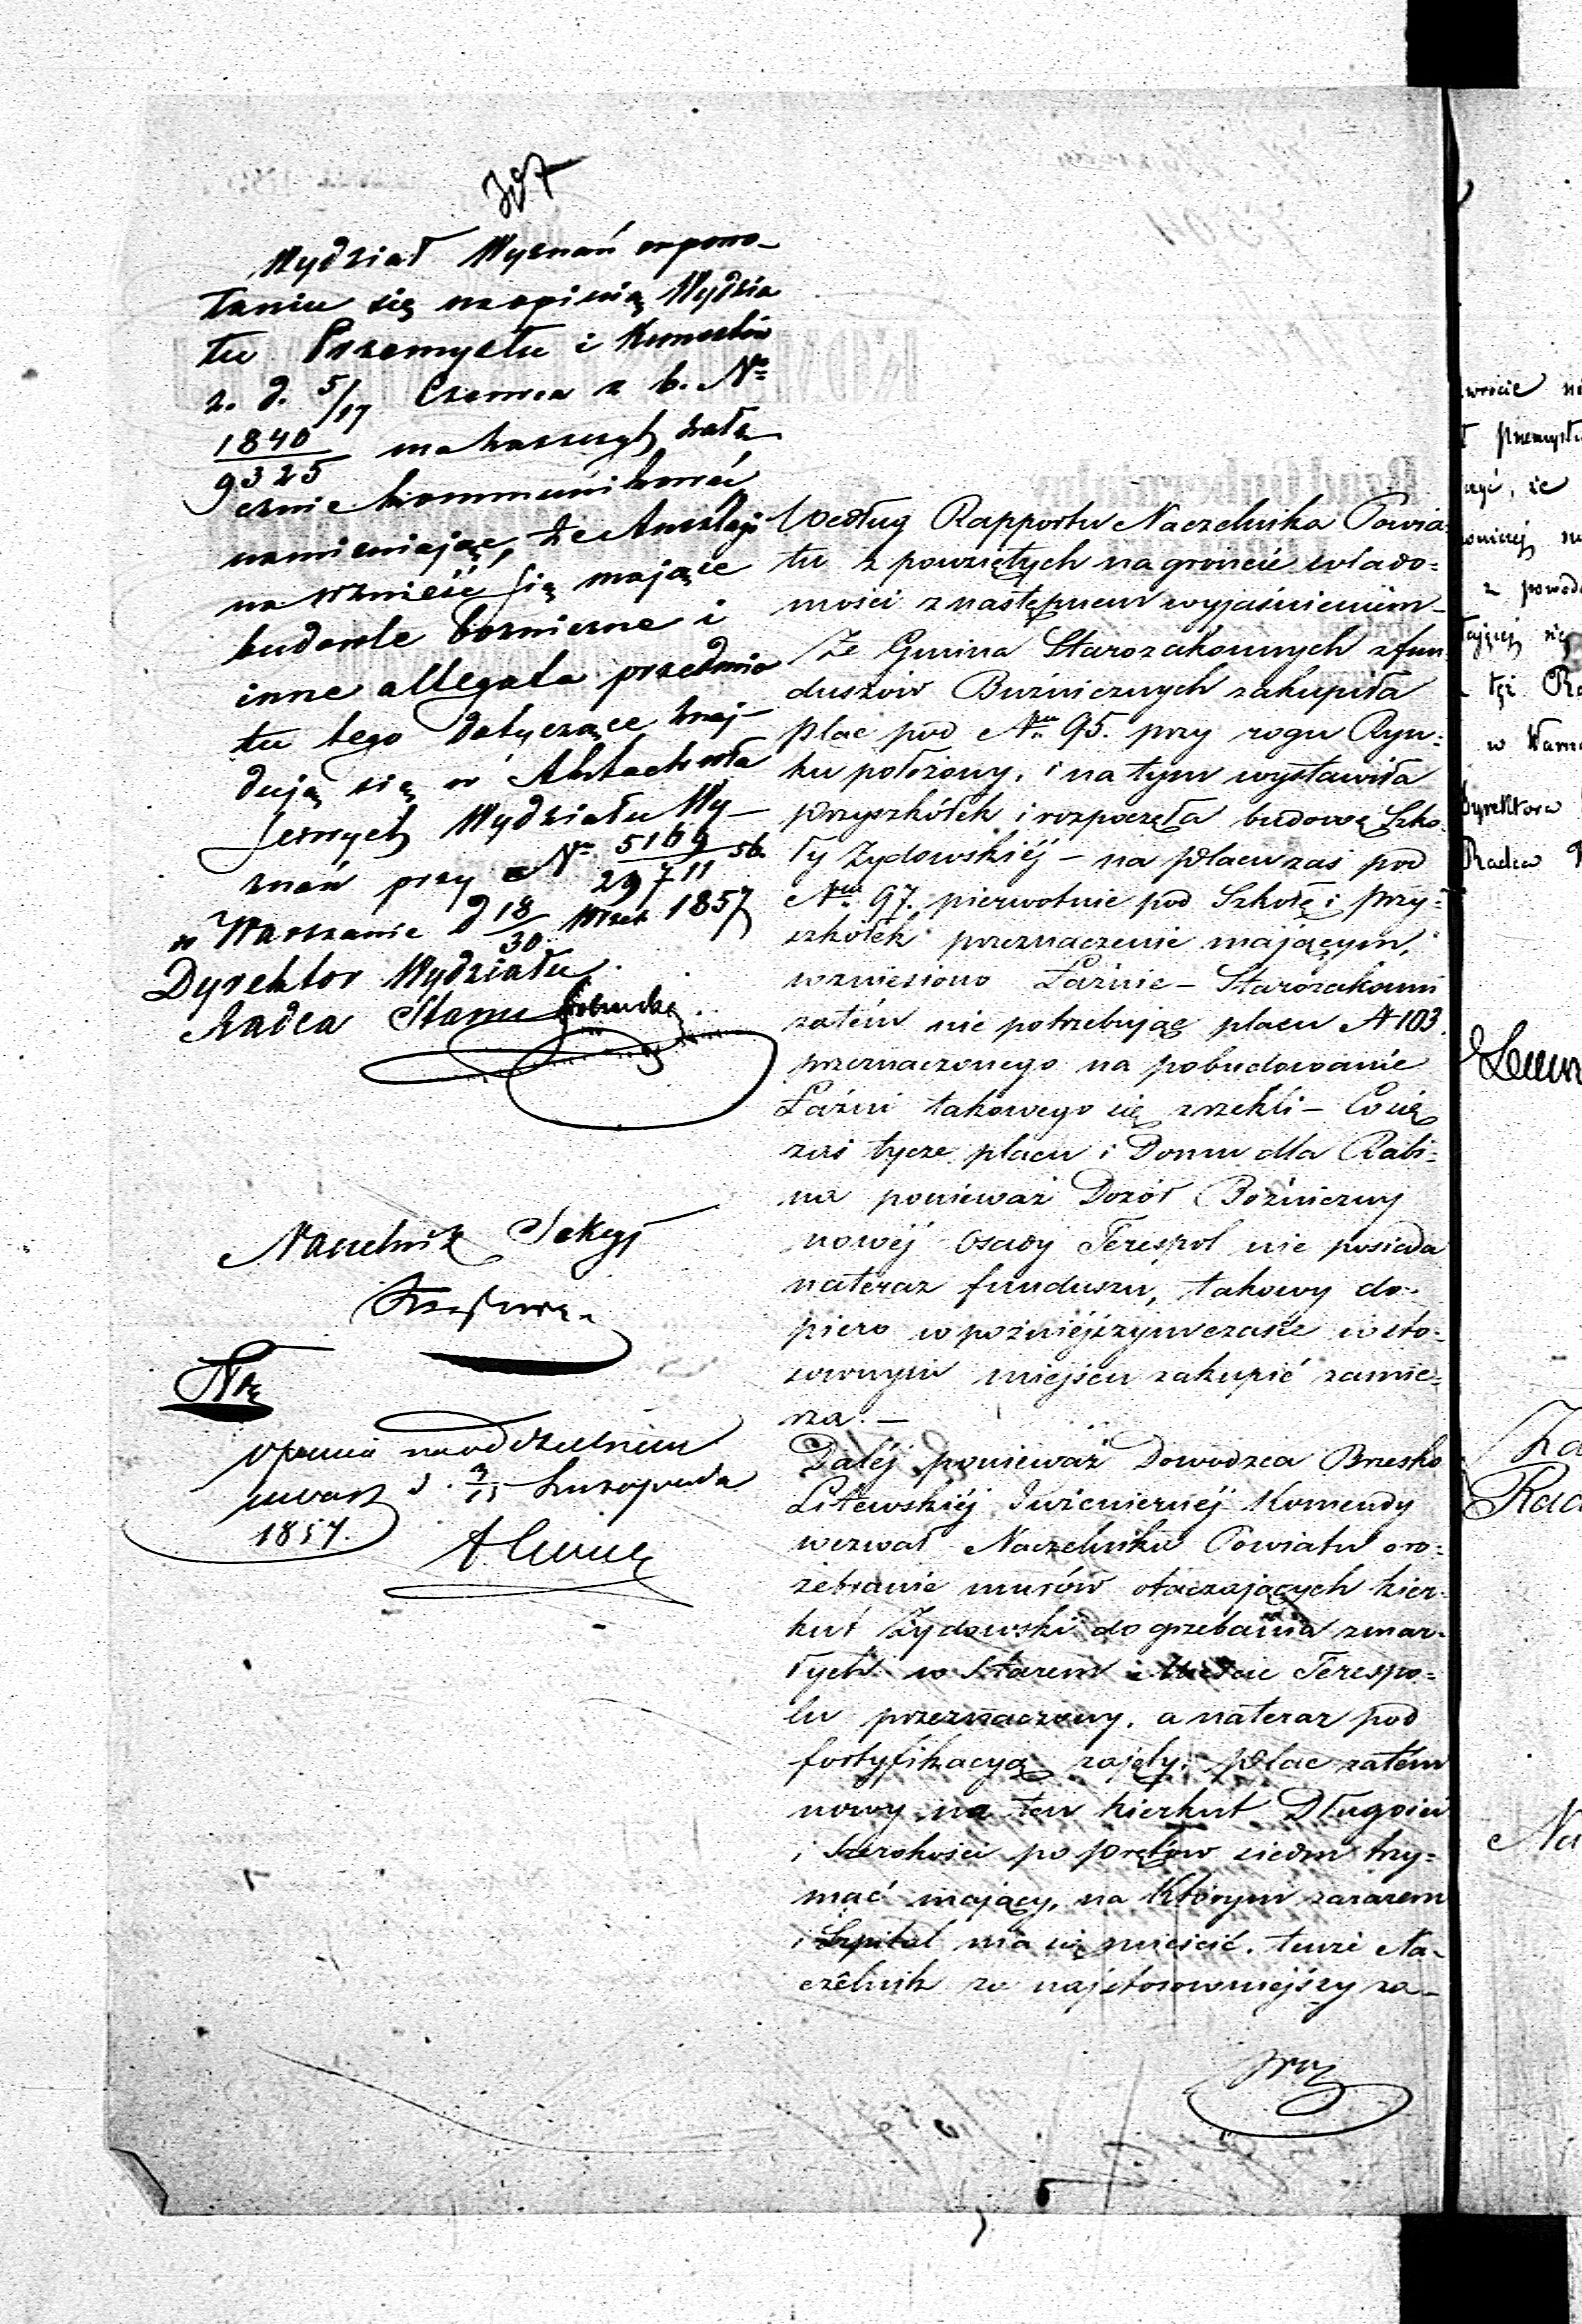 Wydział Wyznań po powo-
łaniu się na opinią Wydzia
łu Przemysłu i Kunsztów
z. d. 5/17 Czerwca r. b. №
1840/9325 ma zaszczyt załą
cznie kommunikować
namieniając, że Anszlagi
na wznieść się mające
budowle bożniczne i
inne allegata przedmio
tu tego dotyczące znaj-
dują się w Aktach
Wydziału Wy-
znań przy № 5169/29711 56.
w Warszawie d 18/30 Wrześ 1857
Dyrektor Wydziału
Radca Stanu
Naczelnik Sekcyi
opinia na oddzielnem
d. 3/15 Listopada
1857.
Według Rapportu Naczelnika Powia-
tu z powziętych na groncie wiado=
mości z następnem wyjaśnieniem-
Że Gmina Starozakonnych z fun-
duszów Buźnicznych zakupiła
plac pod Nrm 95. przy rogu Ryn=
ku położony, i na tym wystawiła
Przyszkółek i rozpoczęła budowę Szko-
ły Żydowskiéj – na placu zaś pod
Nrm 97. pierwotnie pod Szkołę i Przy=
szkółek przeznaczenie mającym,
wzniesiono Łaźnie – Starozakonni
zatém nie potrzebując placu № 103.
przeznaczonego na pobudowanie
Łaźni takowego się zrzekli – Co się
zaś tycze placu i Domu dla Rabi=
na ponieważ Dozór Bóźniczny
nowéj Osady Terespol nie posiada
nateraz funduszu, takowy do=
piero w poźniéjszym czasie w sto=
sownym miejscu zakupić zamie=
rza. –
Daléj ponieważ Dowodzca Brzesko
Litewskiéj Inżenierneéj Komendy
wezwał Naczelnika Powiatu o ro=
zebranie murów otaczających kier-
kut Żydowski do grzebania zmar-
łych w Starem Mieście Terespo=
lu przeznaczony, a nateraz pod
fortyfikacyą zajęty, plac zatém
nowy na ten kierkut Długości
i szerokości po prętów siedm trzy=
mać mający, na którym zarazem
i Szpital ma się mieścić, tenże Na-
czelnik za najstosowniejszy za-